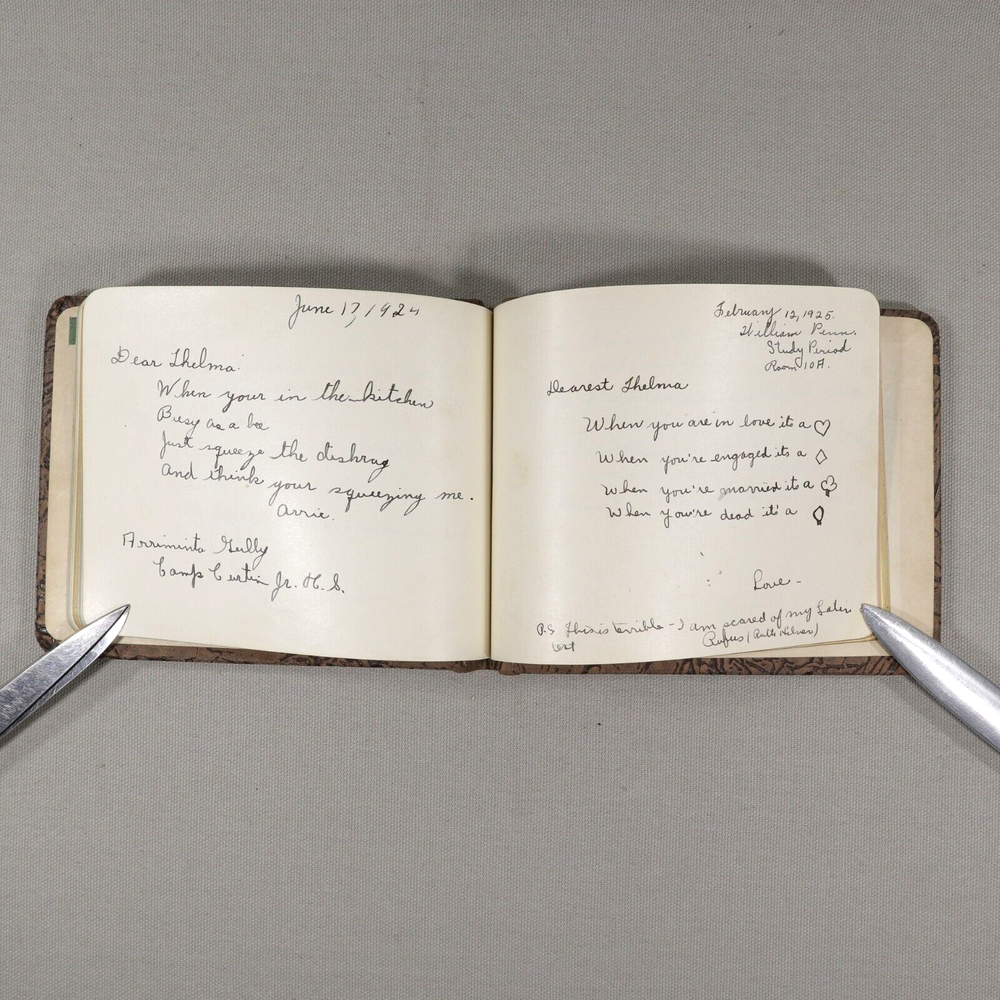 June 17, 1924
Dear Thelma:
When your in the kitchen
Busy as a bee
Just squeeze the dishrag
And think your squeezing me.
Arrie.
Arriminta Gully
Camp Curtin Jr. H. S.
February 12, 1925.
William Penn.
Study Period
Room 107.
Dearest Thelma
When you are in love its a ♡
When you're engaged its a ♢
When you're married it's a ♧
When you're dead it's a
Love -
P.S. This is terrible - I am scared of my Latin
test
Rufus (